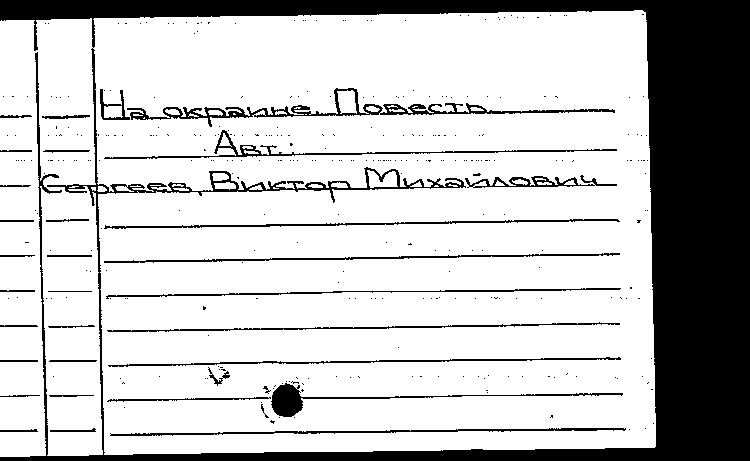 На окраине. Повесть
Авт.:
Сергеев, Виктор Михайлович